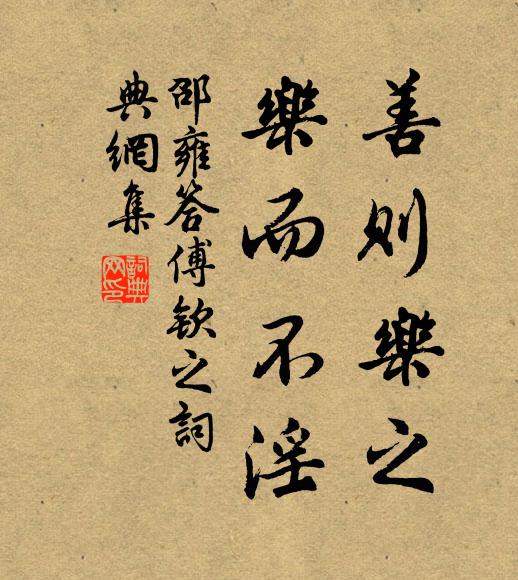 善則樂之
樂而不淫
邵雍答傅欽之詞
典網集
詞典
网印